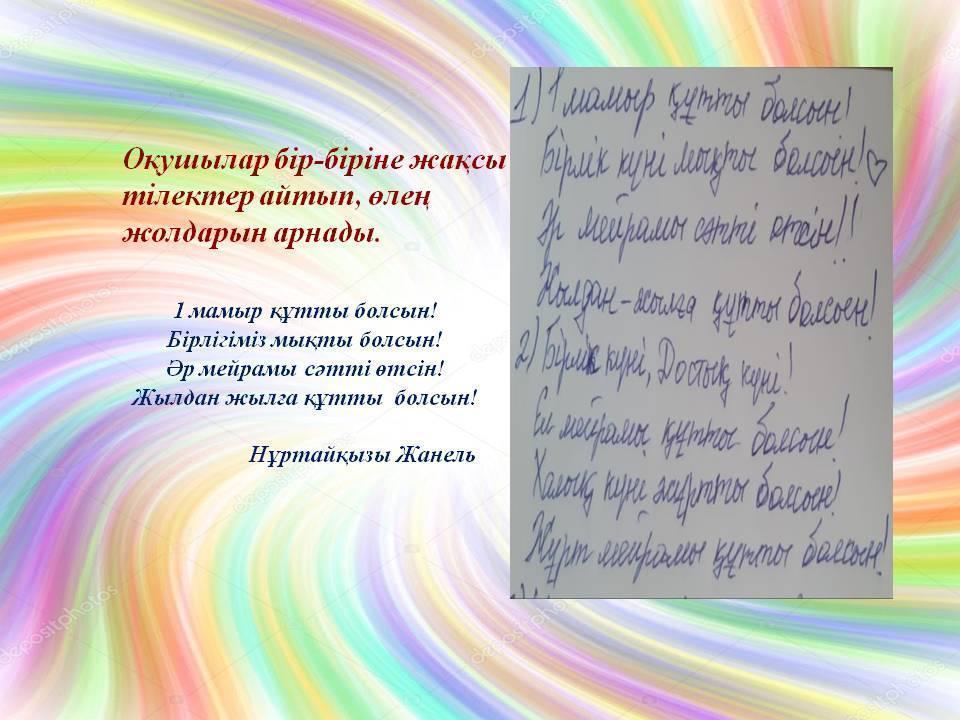 Оқушылар бір-біріне жақсы
тілектер айтып, өлең
жолдарын арнады.
1 мамыр құтты болсын!
Бірлігіміз мықты болсын!
Әр мейрамы сәтті өтсін!
Жылдан жылға құтты болсын!
Нұртайқызы Жанель
1) 1 мамыр құтты болсын!
Бірлік күні мықты болсын!♡
Әр мейрамы сәтті өтсін!!
Жылдан-жылға құтты болсын!
2) Бірлік күні, Достық күні!
Ел мейрамы құтты болсын!
Халық күні жұртты болсын!
Жұрт мейрамы құтты болсын!
depositphotos